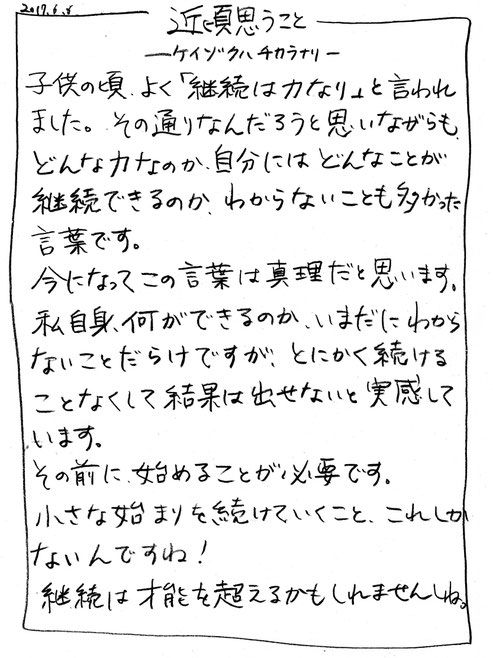 2017.6.8
近頃思うこと
ーケイゾクハチカラナリー
子供の頃、よく「継続は力なり」と言われ
ました。その通りなんだろうと思いながらも、
どんな力なのか、自分にはどんなことが
継続できるのか、わからないことも多かった
言葉です。
今になってこの言葉は真理だと思います。
私自身、何ができるのか、いまだにわから
ないことだらけですが、とにかく続ける
ことなくして結果は出せないと実感して
います。
その前に、始めることが必要です。
小さな始まりを続けていくこと、これしか
ないんですね!
継続は才能を超えるかもしれませんしね。